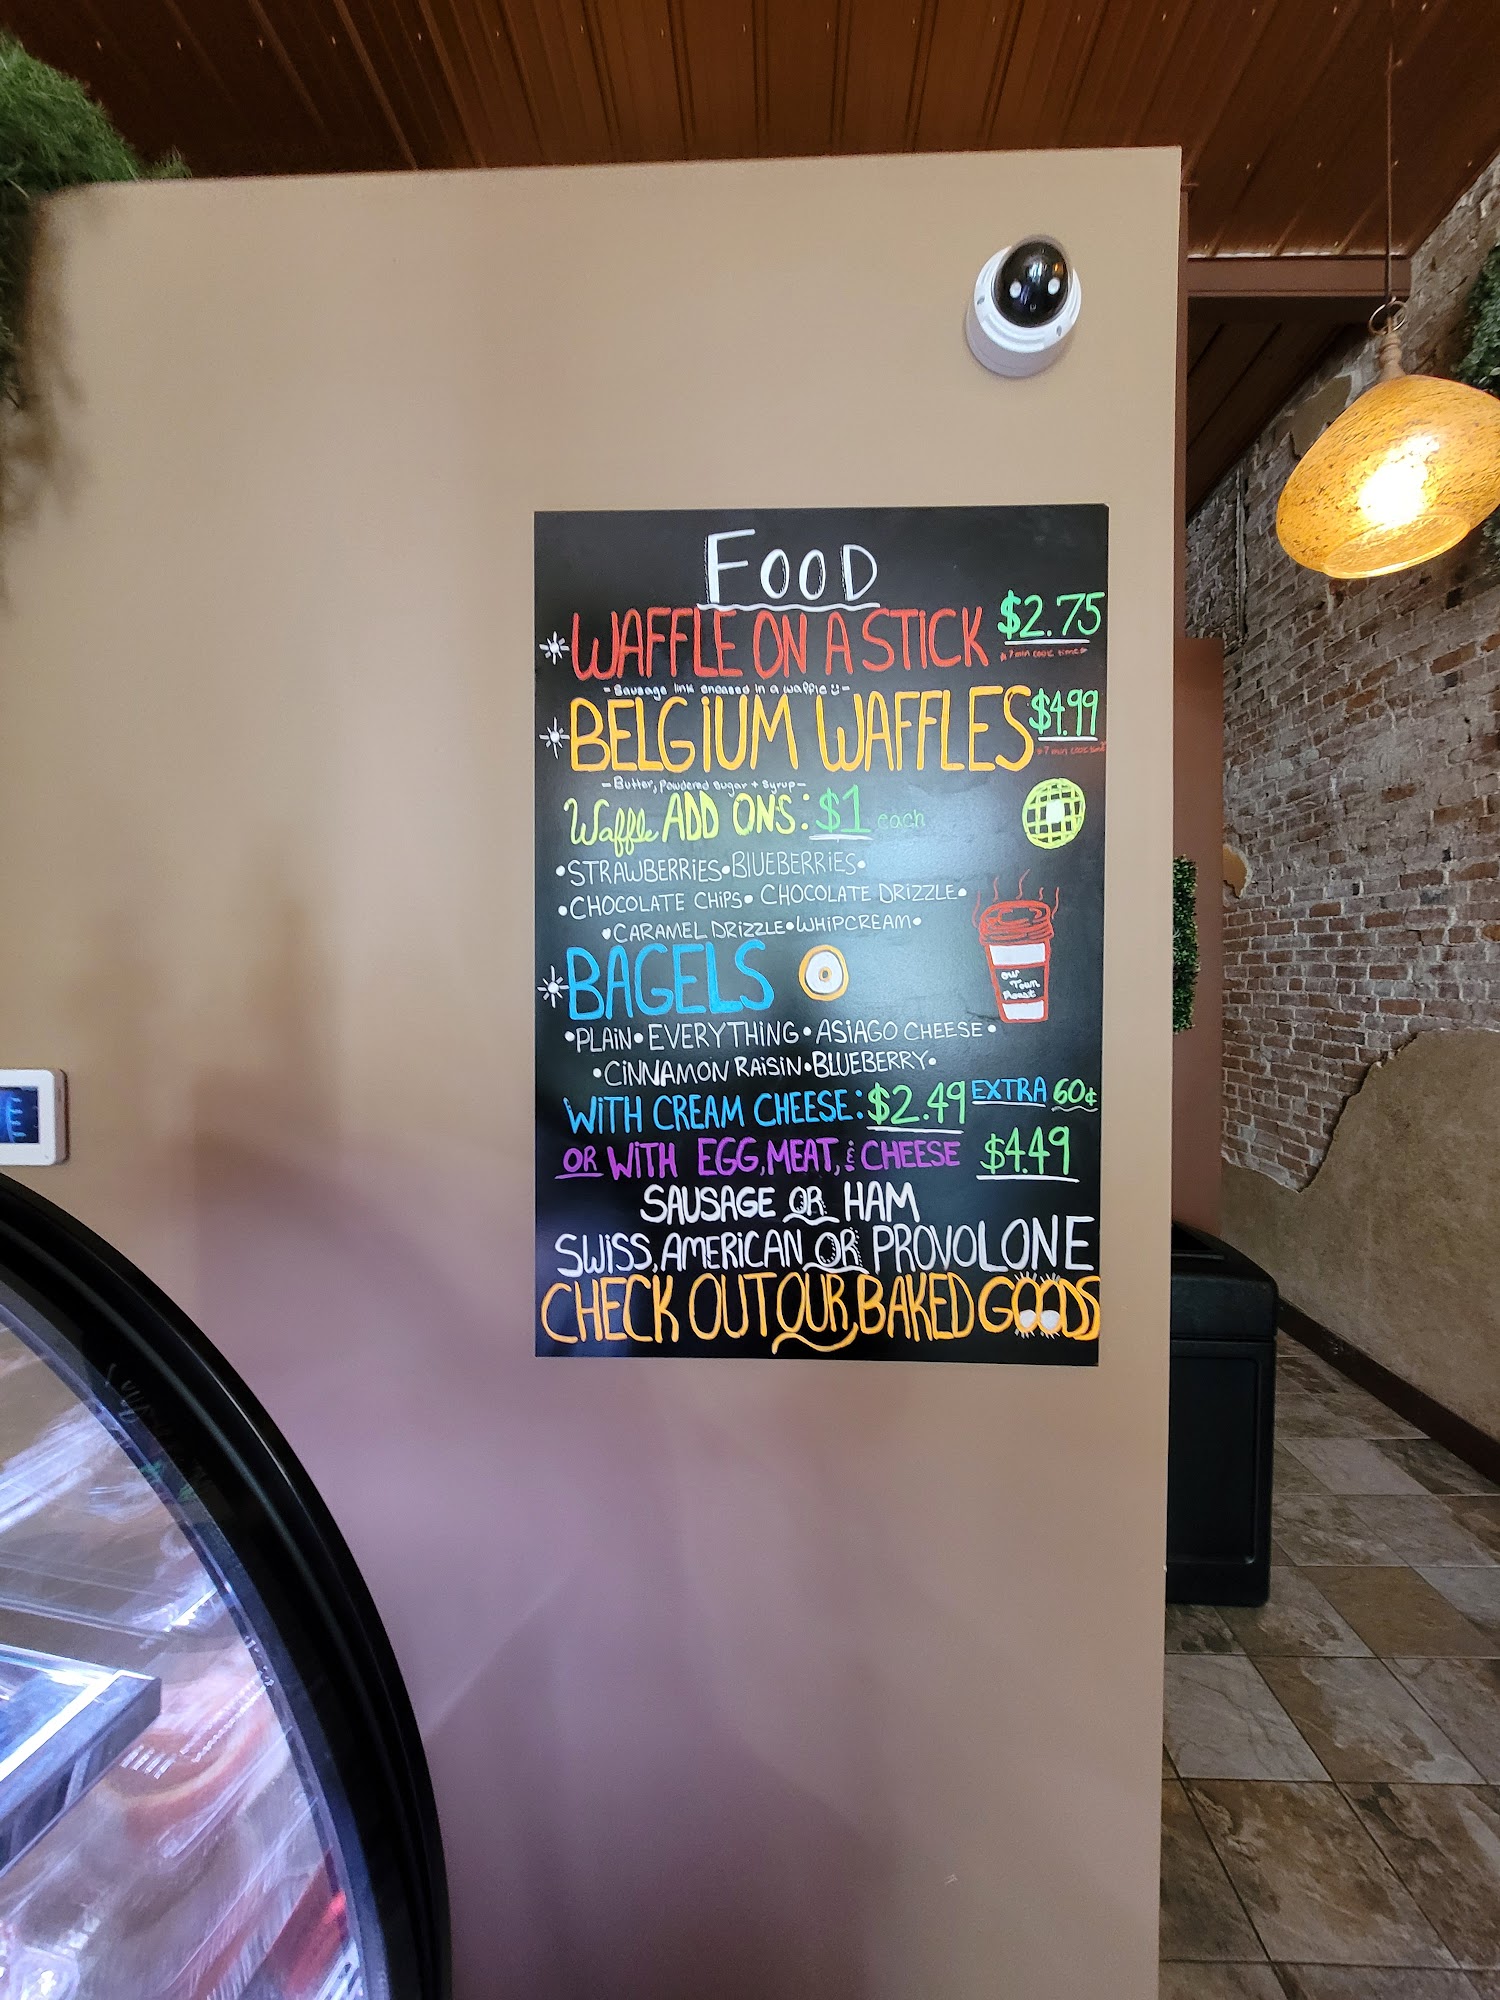 FOOD
WAFFLE ON A STICK $2.75
*7 min cook time*
- Sausage link encased in a waffle -
BELGIUM WAFFLES $4.99
*7 min cook time*
- Butter, Powdered Sugar + Syrup -
Waffle ADD ONS: $1 each
•STRAWBERRIES•BLUEBERRIES•
•CHOCOLATE CHIPS• CHOCOLATE DRIZZLE•
•CARAMEL DRIZZLE•WHIPCREAM•
Our
Town
Roast
BAGELS
•PLAIN•EVERYTHING•ASIAGO CHEESE•
•CINNAMON RAISIN•BLUEBERRY•
WITH CREAM CHEESE: $2.49 EXTRA 60¢
OR WITH EGG, MEAT, & CHEESE $4.49
SAUSAGE OR HAM
SWISS, AMERICAN OR PROVOLONE
CHECK OUT OUR BAKED GOODS